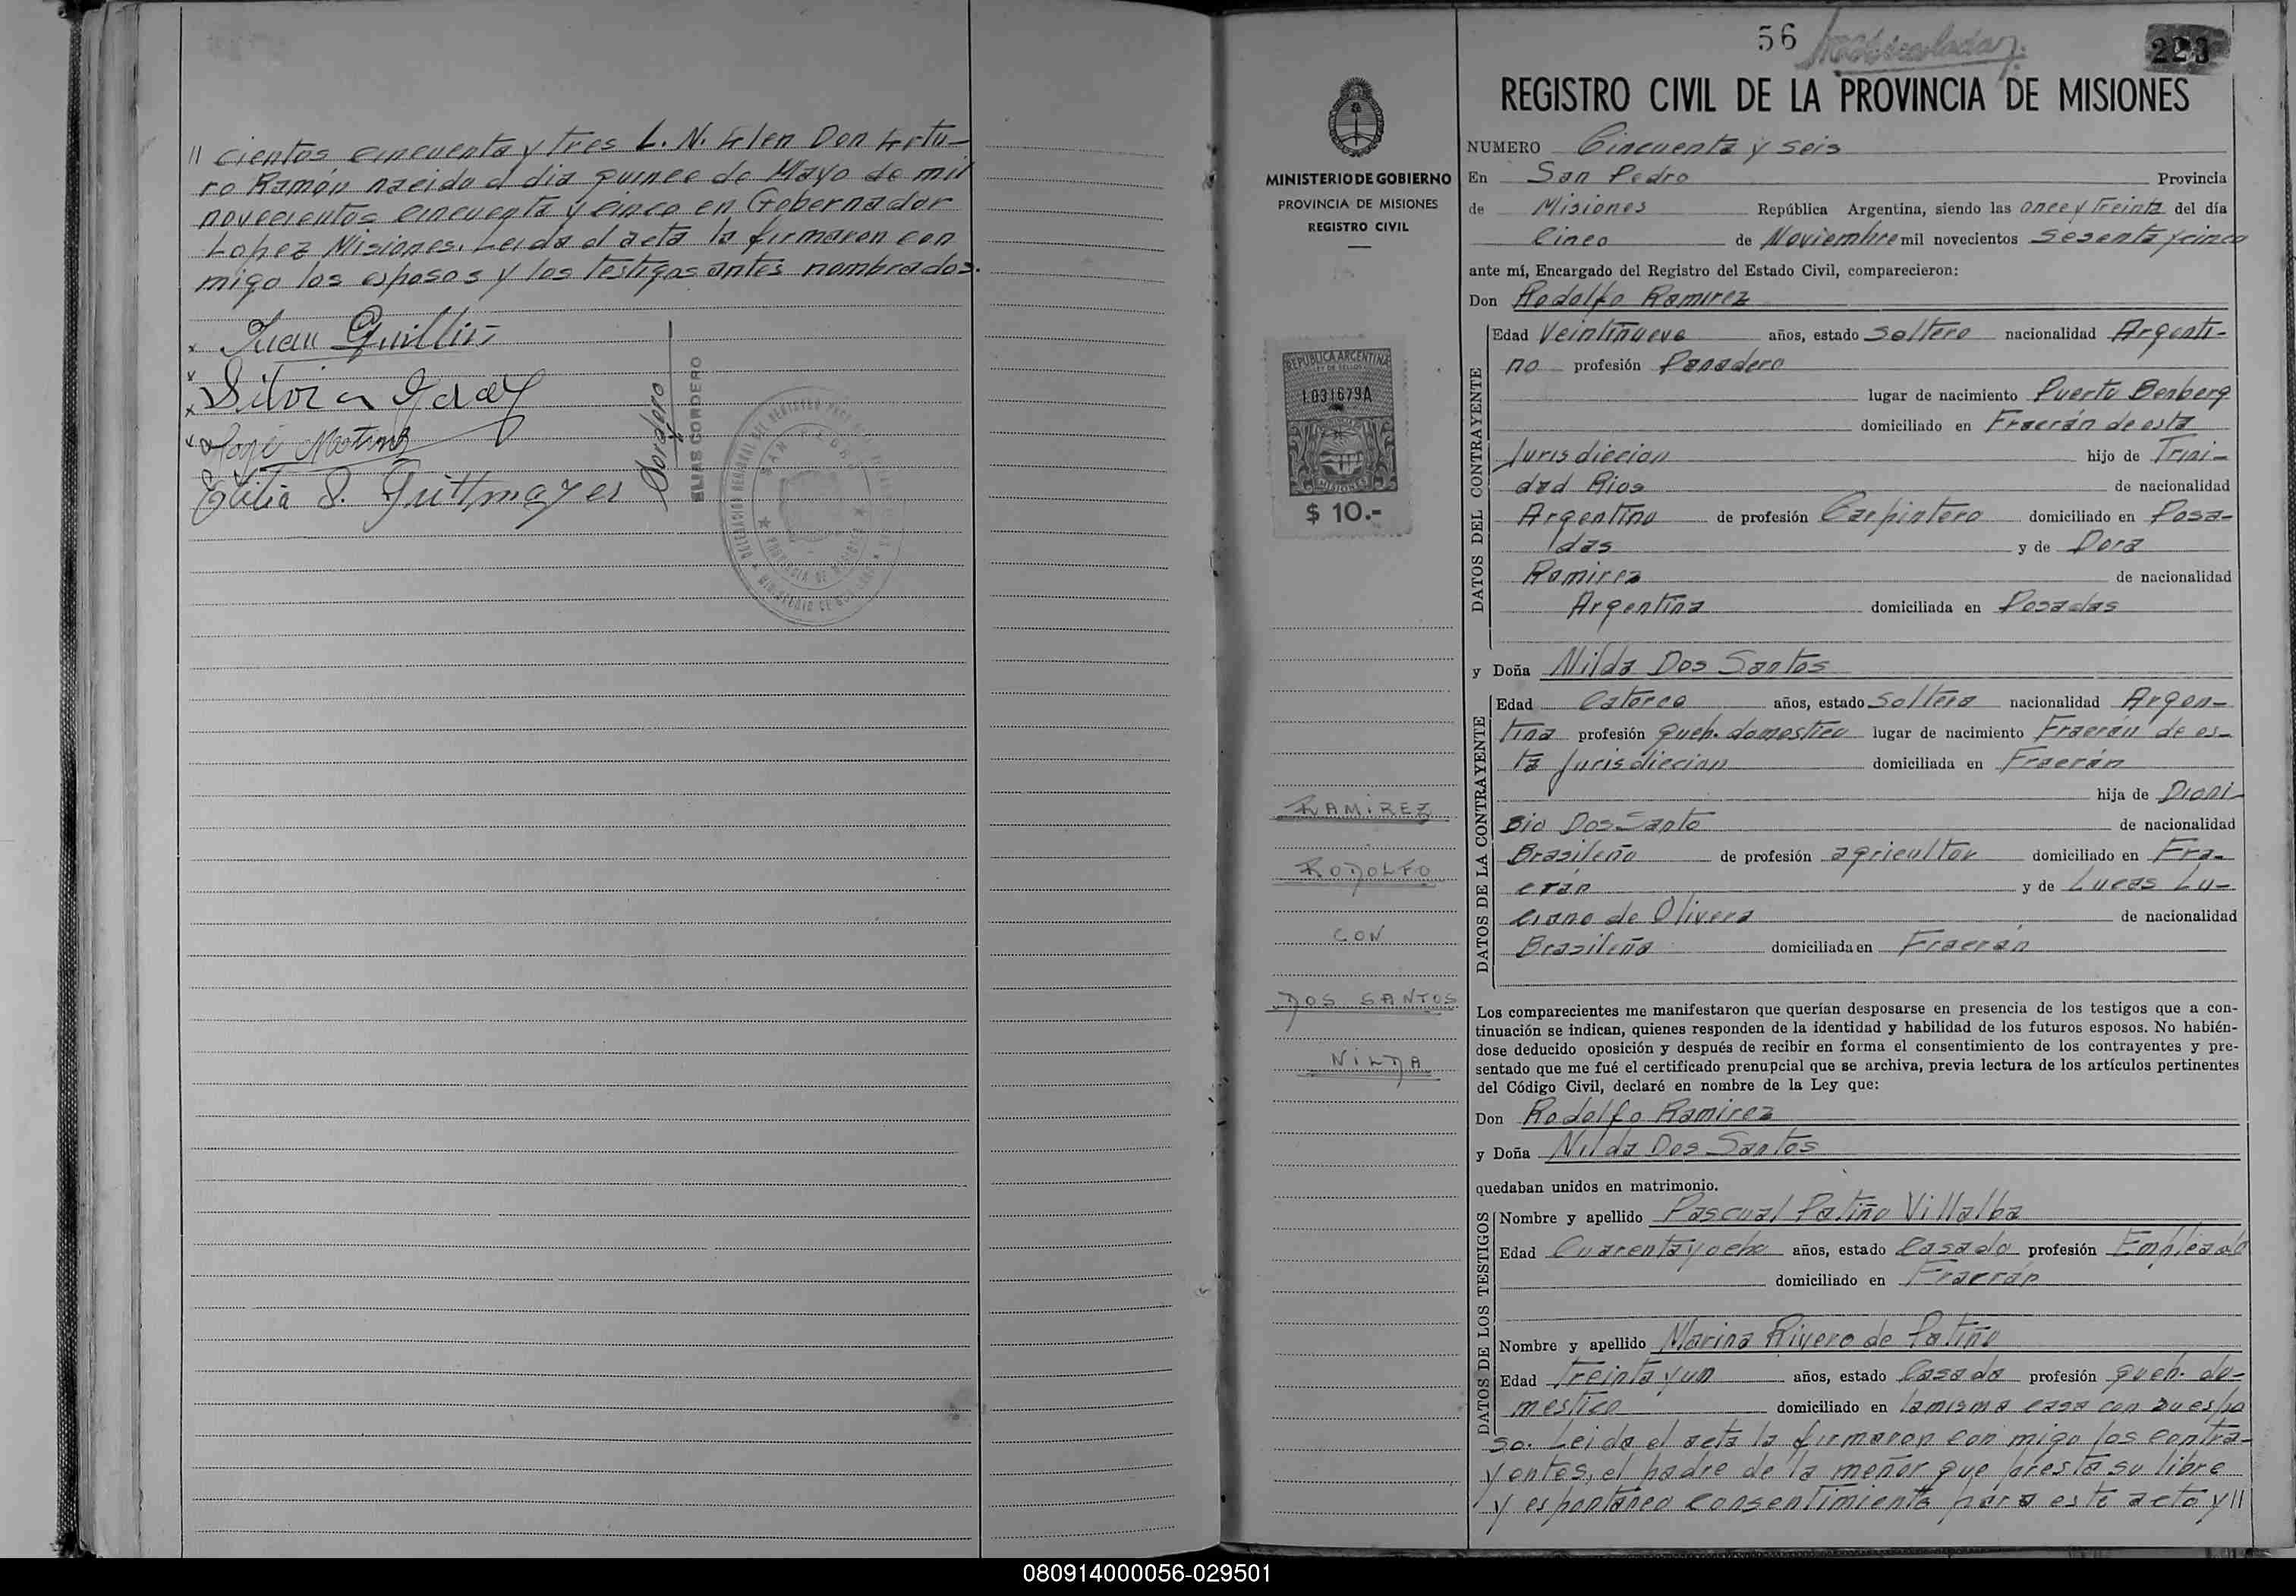 // cientos cincuenta y tres L. N. Don Artu-
ro Ramón nacido el dia quince de Mayo de mil
novecientos cincuenta y cinco en Gobernador
Lopez Misiones. Leida el acta la firmaron con
migo los esposos y los testigos antes nombrados.
Juan
Silvia
José Martinez
S.
Cordero
ELIAS CORDERO
SAN PEDRO
PROVINCIA DE MISIONES
56
223
REGISTRO CIVIL DE LA PROVINCIA DE MISIONES
MINISTERIO DE GOBIERNO
PROVINCIA DE MISIONES
REGISTRO CIVIL
REPUBLICA ARGENTINA
LEY DE SELLOS
1.031679A
MISIONES
$ 10.-
RAMIREZ
RODOLFO
CON
DOS SANTOS
NILDA
NUMERO Cincuenta y seis
En San Pedro Provincia
de Misiones República Argentina, siendo las once y treinta del día
Cinco de Noviembre mil novecientos sesenta y cinco
ante mí, Encargado del Registro del Estado Civil, comparecieron:
Don Rodolfo Ramirez
DATOS DEL CONTRAYENTE
Edad Veintinueve años, estado soltero nacionalidad Argenti-
no profesión Panadero
lugar de nacimiento Puerto Benberg
domiciliado en Fracrán de esta
Jurisdiccion hijo de Trini-
dad Rios de nacionalidad
Argentino de profesión Carpintero domiciliado en Posa-
das y de Dora
Ramirez de nacionalidad
Argentina domiciliada en Posadas
y Doña Nilda Dos Santos
DATOS DE LA CONTRAYENTE
Edad Catorce años, estado soltera nacionalidad Argen-
tina profesión queh. domestico lugar de nacimiento Fracrán de es-
ta Jurisdiccion domiciliada en Fracrán
hija de Dioni-
sio Dos Santo de nacionalidad
Brasileño de profesión agricultor domiciliado en Fra-
crán y de Lucas Lu-
ciano de Olivera de nacionalidad
Brasileña domiciliada en Fracrán
Los comparecientes me manifestaron que querían desposarse en presencia de los testigos que a con-
tinuación se indican, quienes responden de la identidad y habilidad de los futuros esposos. No habién-
dose deducido oposición y después de recibir en forma el consentimiento de los contrayentes y pre-
sentado que me fué el certificado prenupcial que se archiva, previa lectura de los artículos pertinentes
del Código Civil, declaré en nombre de la Ley que:
Don Rodolfo Ramirez
y Doña Nilda Dos Santos
quedaban unidos en matrimonio.
DATOS DE LOS TESTIGOS
Nombre y apellido Pascual Patiño Villalba
Edad Cuarenta y ocho años, estado Casado profesión Empleado
domiciliado en Fracrán
Nombre y apellido Marina Rivero de Patiño
Edad Treinta y un años, estado Casada profesión queh. do-
mestico domiciliado en la misma casa con su espo
so. Leida el acta la firmaron con migo los contra-
yentes, el padre de la menor que presta su libre
y espontaneo consentimiento para este acto y //
080914000056-029501